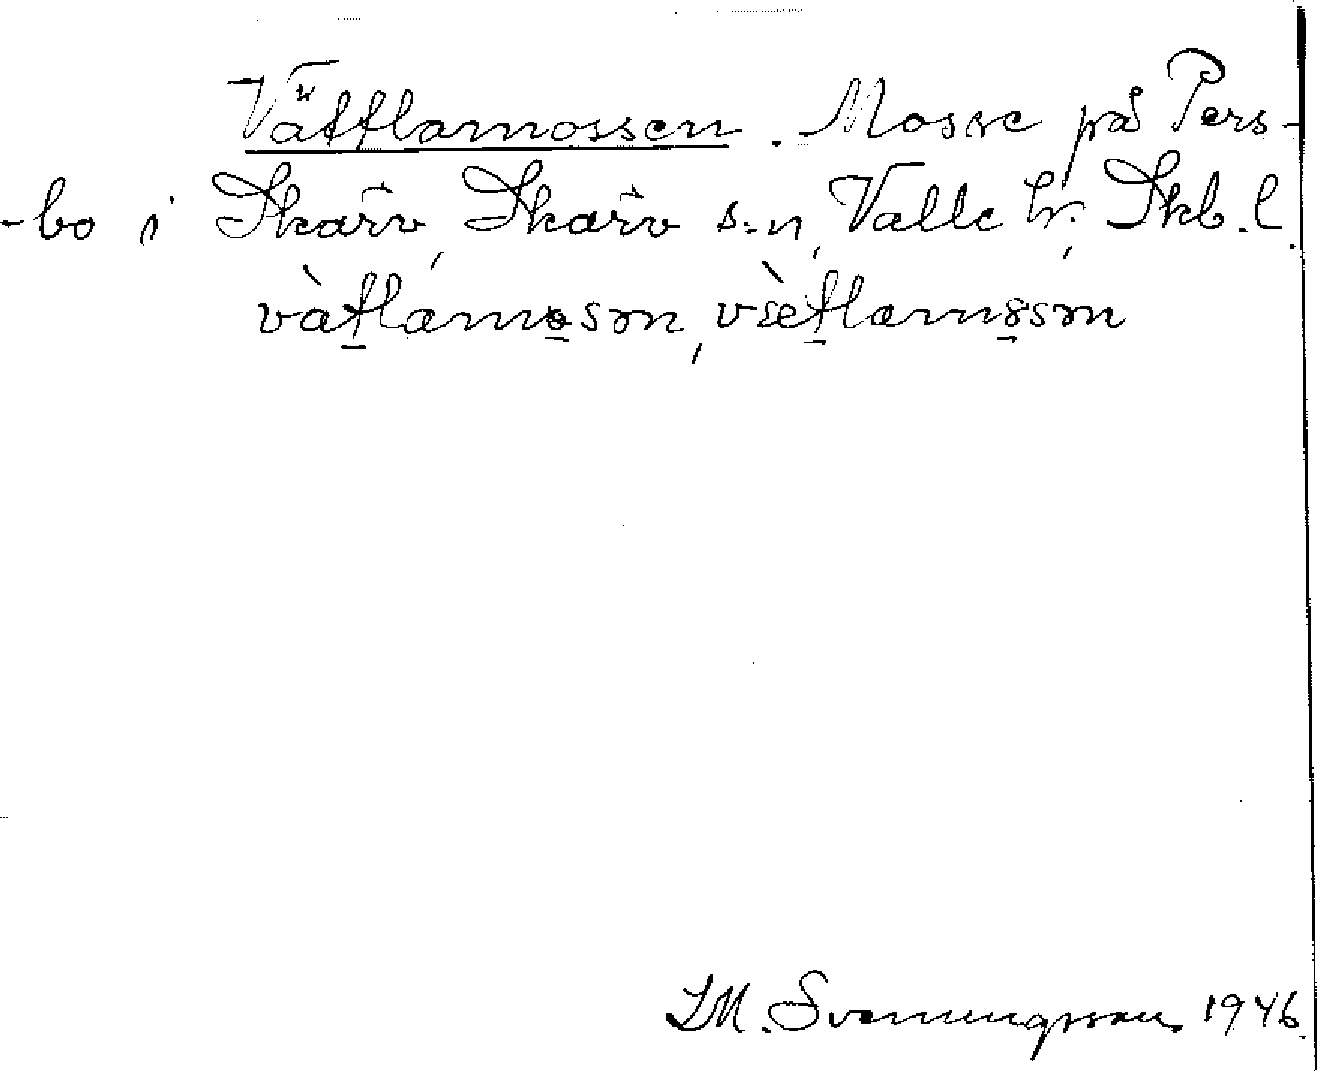 Vättlamossen. Mosse på Pers-
-bo i Skärv, Skärv s:n, Valle h., Skb. l.
vàtlamosən, vætlamosən
L M. Svenungsson 1946.